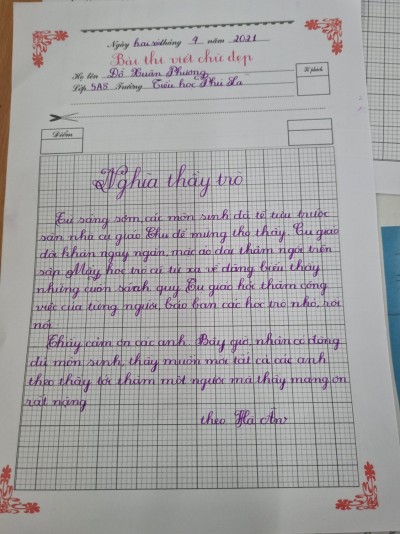 Ngày hai sáu tháng 9 năm 2021
Bài thi viết chữ đẹp
Họ tên Đỗ Xuân Phương
Lớp 5A8 Trường Tiểu học Phú La
Số phách
Điểm
Nghĩa thầy trò
Từ sáng sớm, các môn sinh đã tề tựu trước
sân nhà cụ giáo Chu để mừng thọ thầy. Cụ giáo
đội khăn ngay ngắn, mặc áo dài thâm ngồi trên
sập. Mấy học trò cũ từ xa về dâng biếu thầy
những cuốn sách quý. Cụ giáo hỏi thăm công
việc của từng người, bảo ban các học trò nhỏ, rồi
nói
Thầy cảm ơn các anh. Bây giờ, nhân có đông
đủ môn sinh, thầy muốn mời tất cả các anh
theo thầy tới thăm một người mà thầy mang ơn
rất nặng
theo Hà Ân